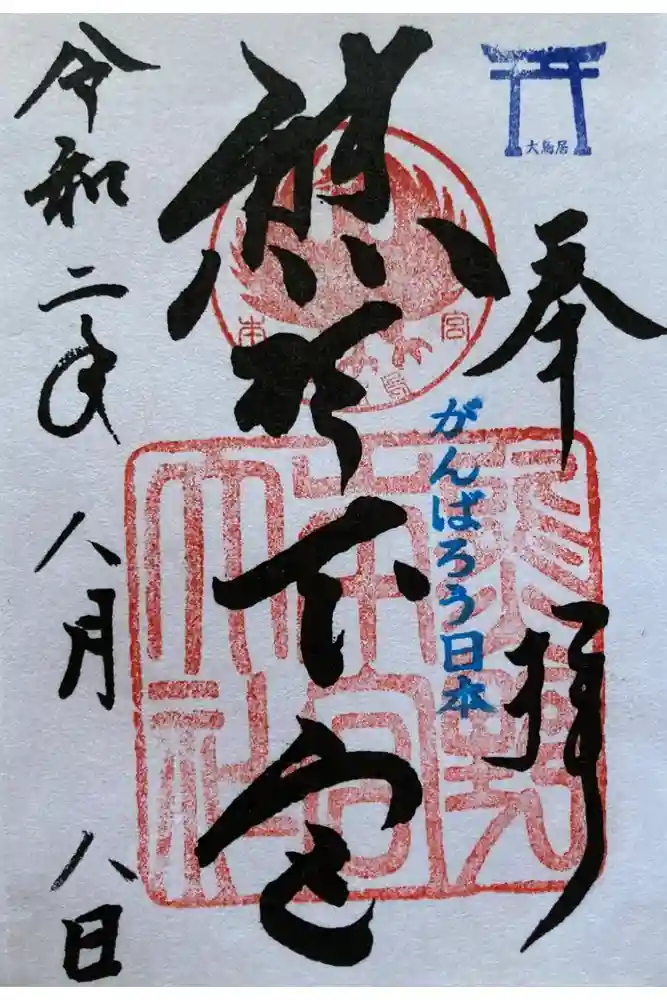 大鳥居
奉拝
がんばろう日本
熊野本宮
熊野本宮大社
本宮
令和二年八月八日